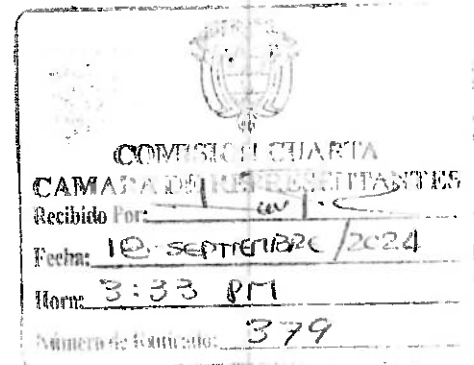 COMISION CUARTA
CAMARA DE REPRESENTANTES
Recibido Por:
Fecha: 10 SEPTIEMBRE /2024
Hora: 3:33 PM
Número de Radicado: 379